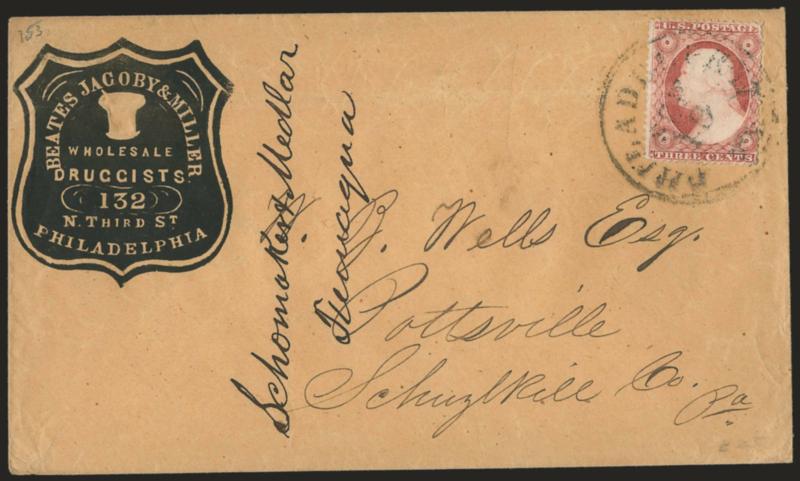 153
BEATES JACOBY & MILLER
WHOLESALE
DRUGGISTS.
132
N. THIRD ST
PHILADELPHIA
U.S. POSTAGE
THREE CENTS
PHILADEL
Wells Esq.
Pottsville
Schuylkill Co.
Pa